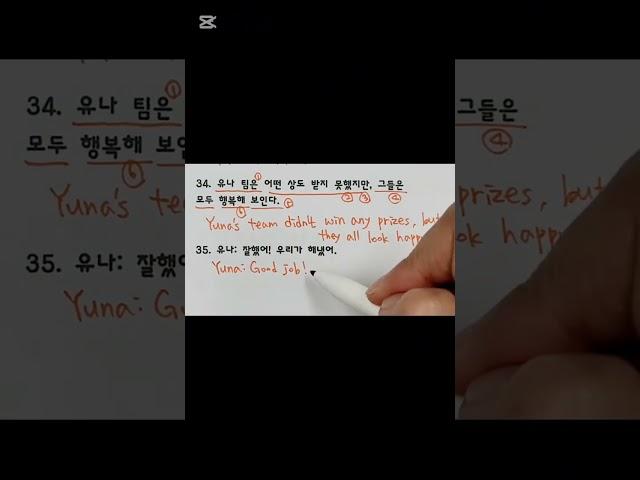 34. 유나 팀은 어떤 상도 받지 못했지만, 그들은
모두 행복해 보인다.
Yuna's team didn't win any prizes, but
they all look happ
35. 유나: 잘했어! 우리가 해냈어.
Yuna: Good job!